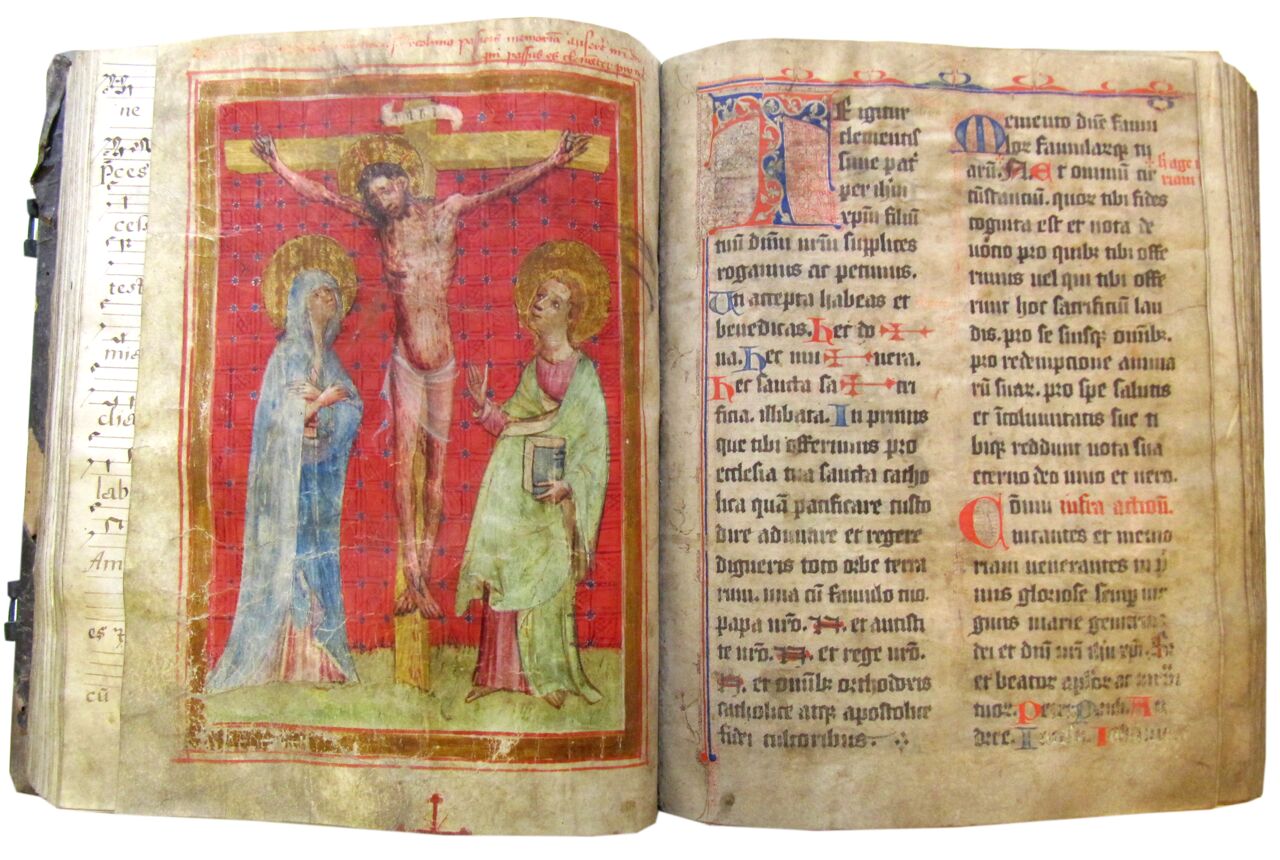 ne
ces
cels
test
mis
lab
Am
es
cū
pascis memoria
qui passus es
TE igitur
clementis
sime pať
per ihm
xpm filiū
tuū dnm nrm supplices
rogamus ac petimus.
Uti accepta habeas et
benedicas. hec do ✠
na. hec mu ✠ nera.
hec sancta sa ✠ cri
ficia. illibata. In primis
que tibi offerimus pro
ecclesia tua sancta catho
lica quā pacificare custo
dire adunare et regere
digneris toto orbe terra
rum. una cū famulo tuo.
papa nro. N. et antisti
te nro. N. et rege nro.
N. et omnibꝫ orthodoxis
catholice atqꝫ apostolice
fidei cultoribus.
Memento dne famu
lorꝫ famularūqꝫ tu
arū. N. Et omnium cir
cūstanciū. quorꝫ tibi fides
cognita est et nota de
uocio pro quibꝫ tibi offe
rimus uel qui tibi offe
runt hoc sacrificiū lau
dis. pro se suisqꝫ omībꝫ.
pro redempcione anima
rū suarꝫ. pro spe salutis
et īcolumitatis sue ti
biqꝫ reddunt uota sua
eterno deo uiuo et uero.
Cōmu infra actionē.
Cōmunicantes et memo
riam uenerantes in p̄
mis gloriose semꝑ uir
ginis marie genitricis
dei et dnī nrī ihu xpi.
et beatorꝫ aplorꝫ ac
tuorꝫ. Petri Pauli An
dree.